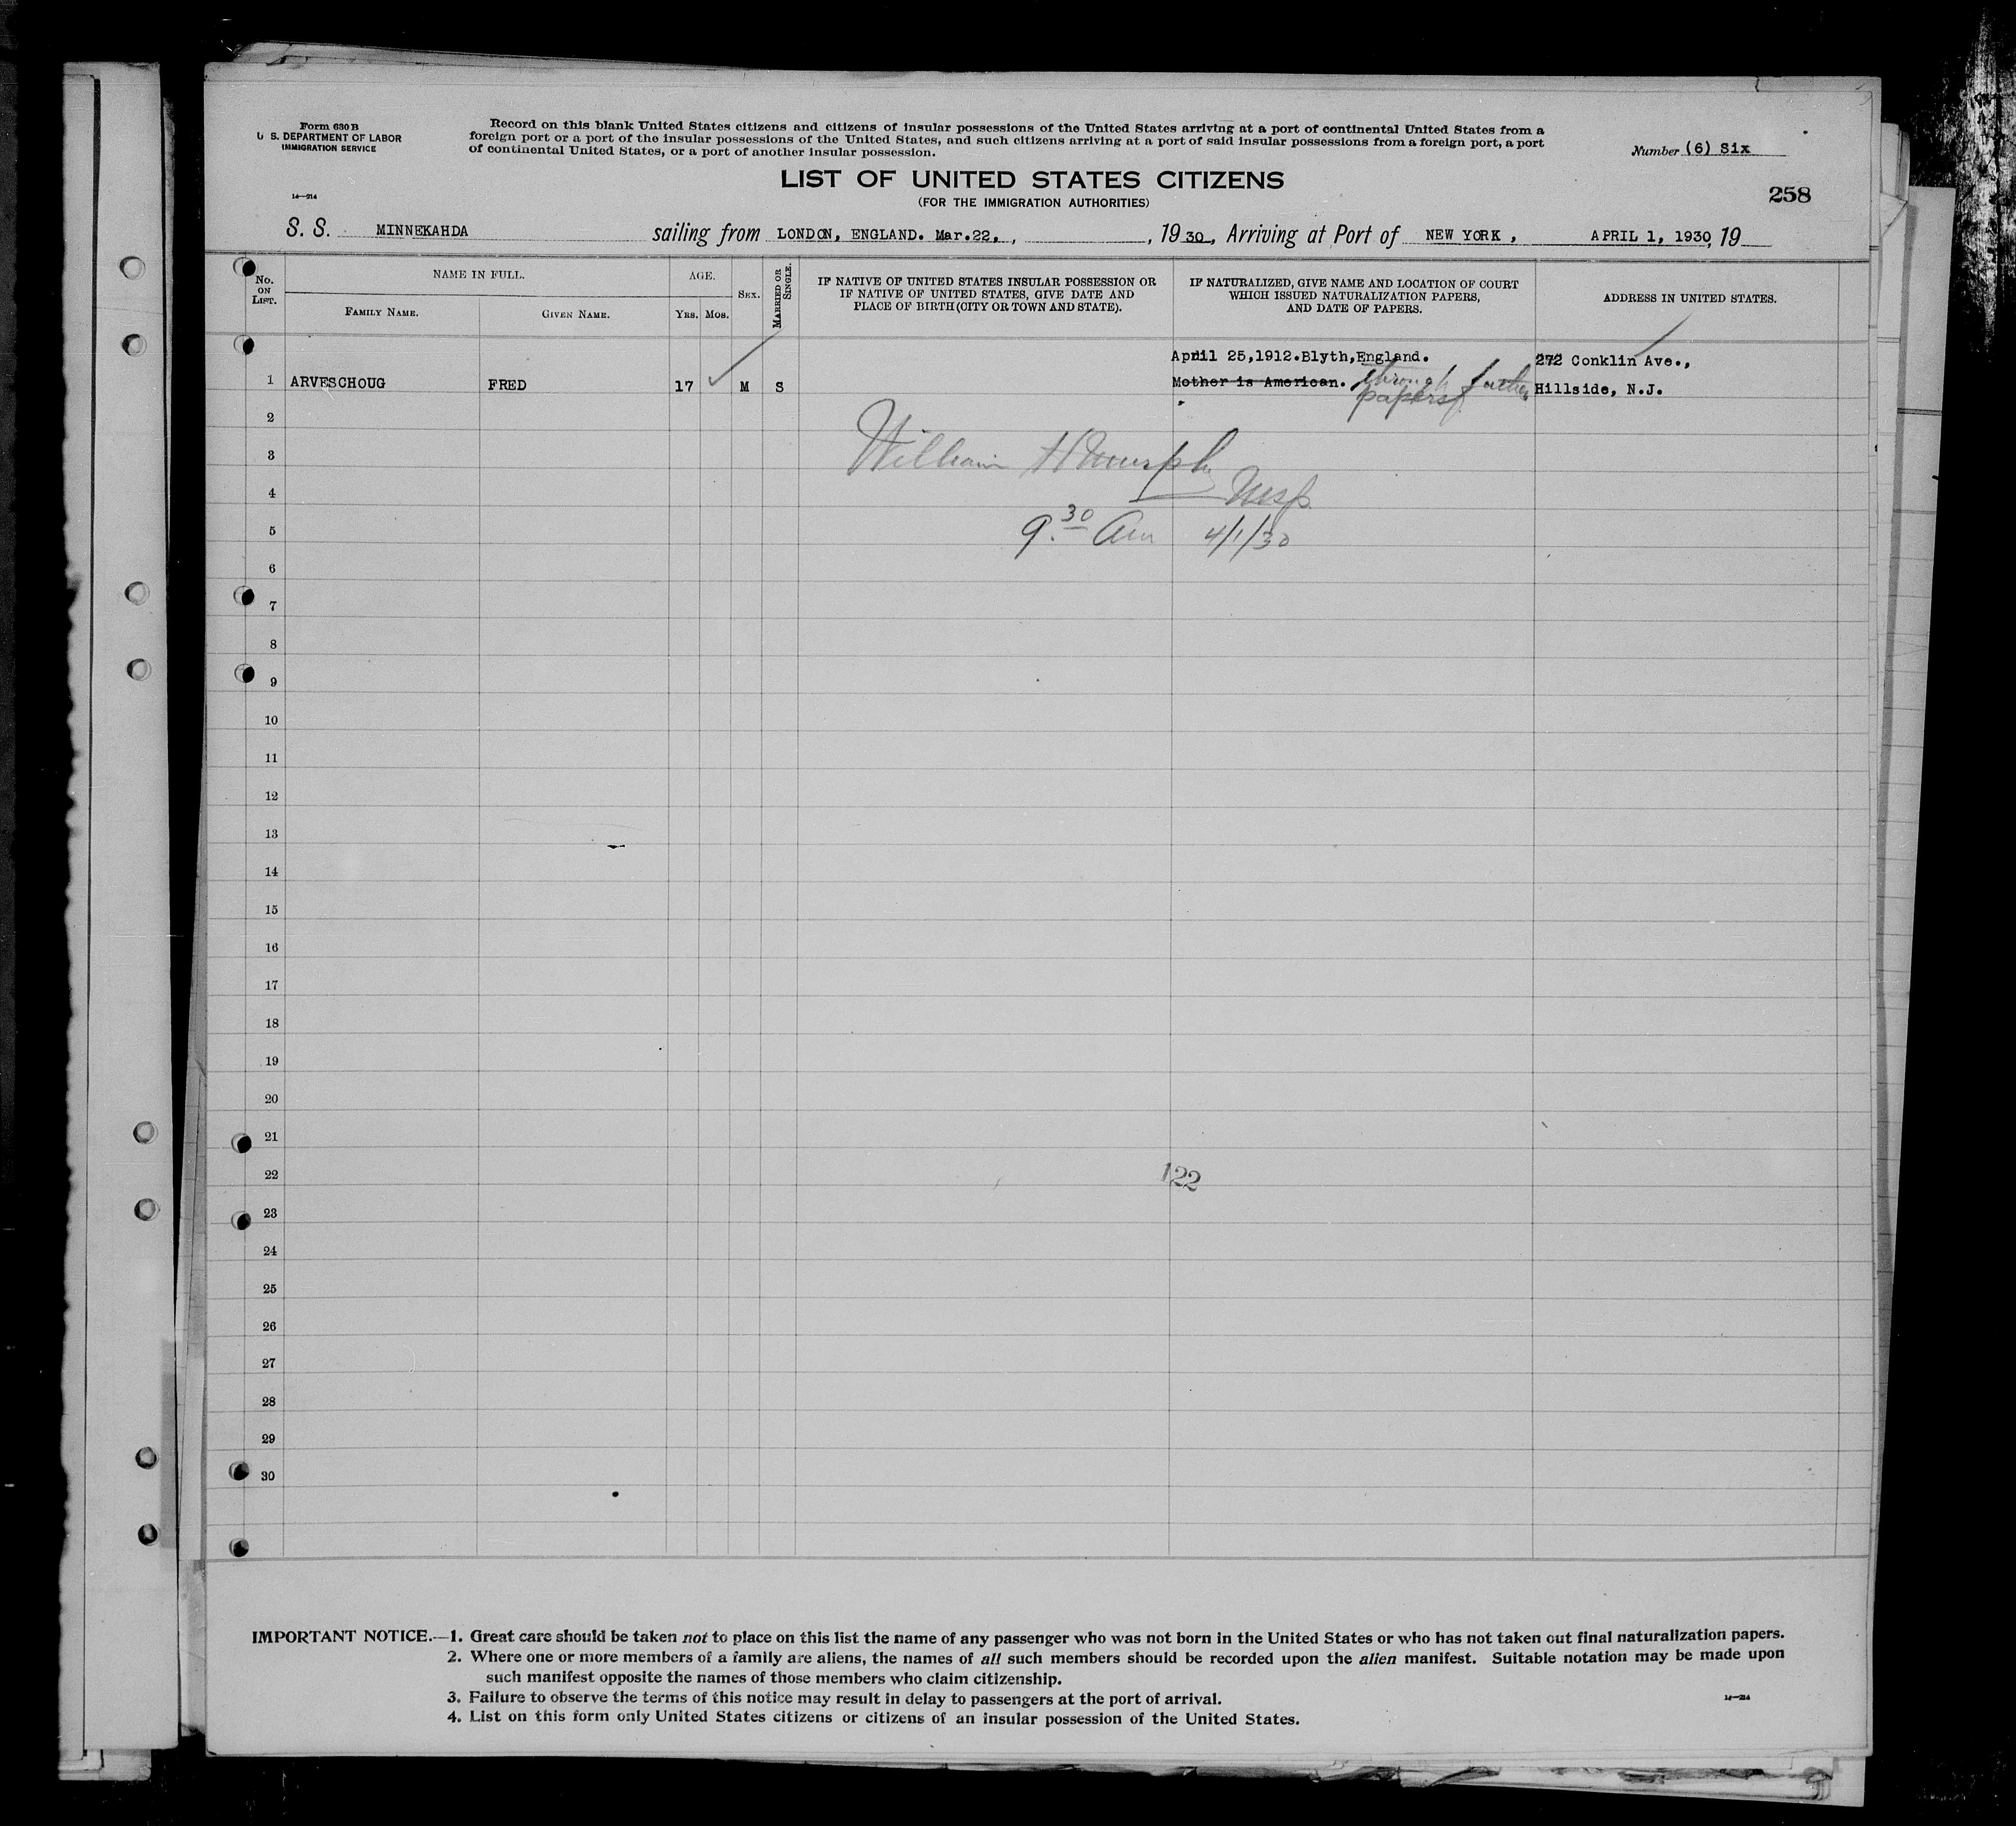 Form 630 B
U. S. DEPARTMENT OF LABOR
IMMIGRATION SERVICE
14—214
Record on this blank United States citizens and citizens of insular possessions of the United States arriving at a port of continental United States from a
foreign port or a port of the insular possessions of the United States, and such citizens arriving at a port of said insular possessions from a foreign port, a port
of continental United States, or a port of another insular possession.
Number (6) Six
LIST OF UNITED STATES CITIZENS
(FOR THE IMMIGRATION AUTHORITIES)
258
S. S. MINNEKAHDA sailing from LONDON, ENGLAND. Mar.22, , , 19 30, Arriving at Port of NEW YORK, APRIL 1, 1930, 19
No. ON LIST.
NAME IN FULL.
FAMILY NAME.
GIVEN NAME.
AGE.
YRS. MOS.
SEX.
MARRIED OR SINGLE.
IF NATIVE OF UNITED STATES INSULAR POSSESSION OR
IF NATIVE OF UNITED STATES, GIVE DATE AND
PLACE OF BIRTH (CITY OR TOWN AND STATE).
IF NATURALIZED, GIVE NAME AND LOCATION OF COURT
WHICH ISSUED NATURALIZATION PAPERS,
AND DATE OF PAPERS.
ADDRESS IN UNITED STATES.
April 25,1912.Blyth,England. 272 Conklin Ave.,
1 ARVESCHOUG FRED 17 M S Mother is American. through father Hillside, N.J.
papers
2
3 William H Murphy
4 Insp
5 9.30 Am 4/1/30
6
7
8
9
10
11
12
13
14
15
16
17
18
19
20
21
22 122
23
24
25
26
27
28
29
30
IMPORTANT NOTICE.—1. Great care should be taken not to place on this list the name of any passenger who was not born in the United States or who has not taken out final naturalization papers.
2. Where one or more members of a family are aliens, the names of all such members should be recorded upon the alien manifest. Suitable notation may be made upon
such manifest opposite the names of those members who claim citizenship.
3. Failure to observe the terms of this notice may result in delay to passengers at the port of arrival.
4. List on this form only United States citizens or citizens of an insular possession of the United States.
14—214